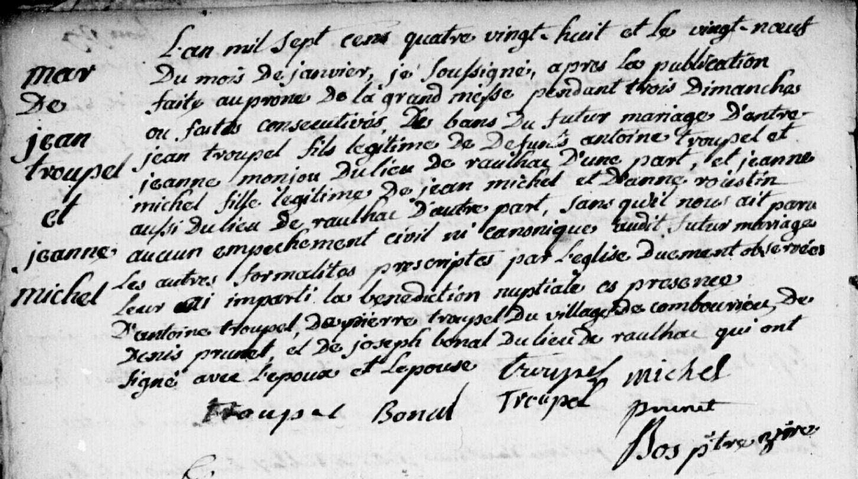 mar
De
jean
troupel
et
jeanne
michel
L'an mil sept cens quatre vingt-huit et le vingt-neuf
Du mois De janvier, je soussigné, apres la publication
faite au prone De la grand messe pendant trois Dimanches
ou fastes consecutives, Des bans Du futur mariage D'entre
jean troupel fils legitime de Defunts antoine troupel et
jeanne monjou Du lieu De raulhac D'une part, et jeanne
michel fille legitime De jean michel et D'anne
aussi Du lieu De raulhac D'autre part, sans qu'il nous ait paru
aucun empechement civil ni canonique audit futur mariage
Les autres formalités prescriptes par l'eglise Duement observées
Leur ai imparti la benediction nuptiale es presence
D'antoine troupel, De pierre troupel Du village De combourieu, De
Denis prunet, et De joseph bonal Du lieu De raulhac qui ont
signé avec L'epoux et L'epouse troupel michel
troupel Bonal Troupel prunet
Bos ptre vire